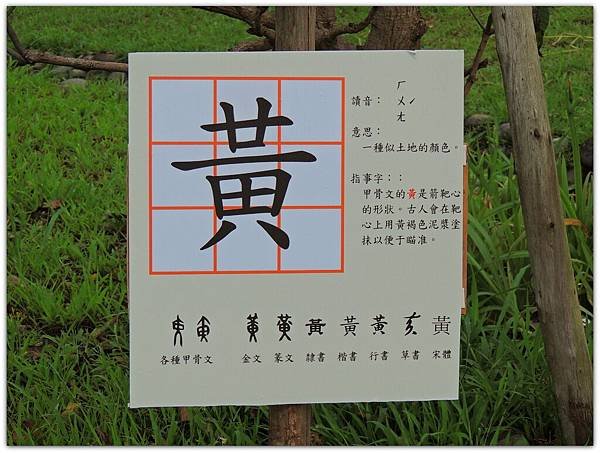 黃
讀音：ㄏㄨㄤˊ
意思：
一種似土地的顏色。
指事字：：
甲骨文的黃是箭靶心
的形狀。古人會在靶
心上用黃褐色泥漿塗
抹以便于瞄准。
黃 黃 黃 黃 黃 黃 黃 黃 黃
各種甲骨文 金文 篆文 隸書 楷書 行書 草書 宋體